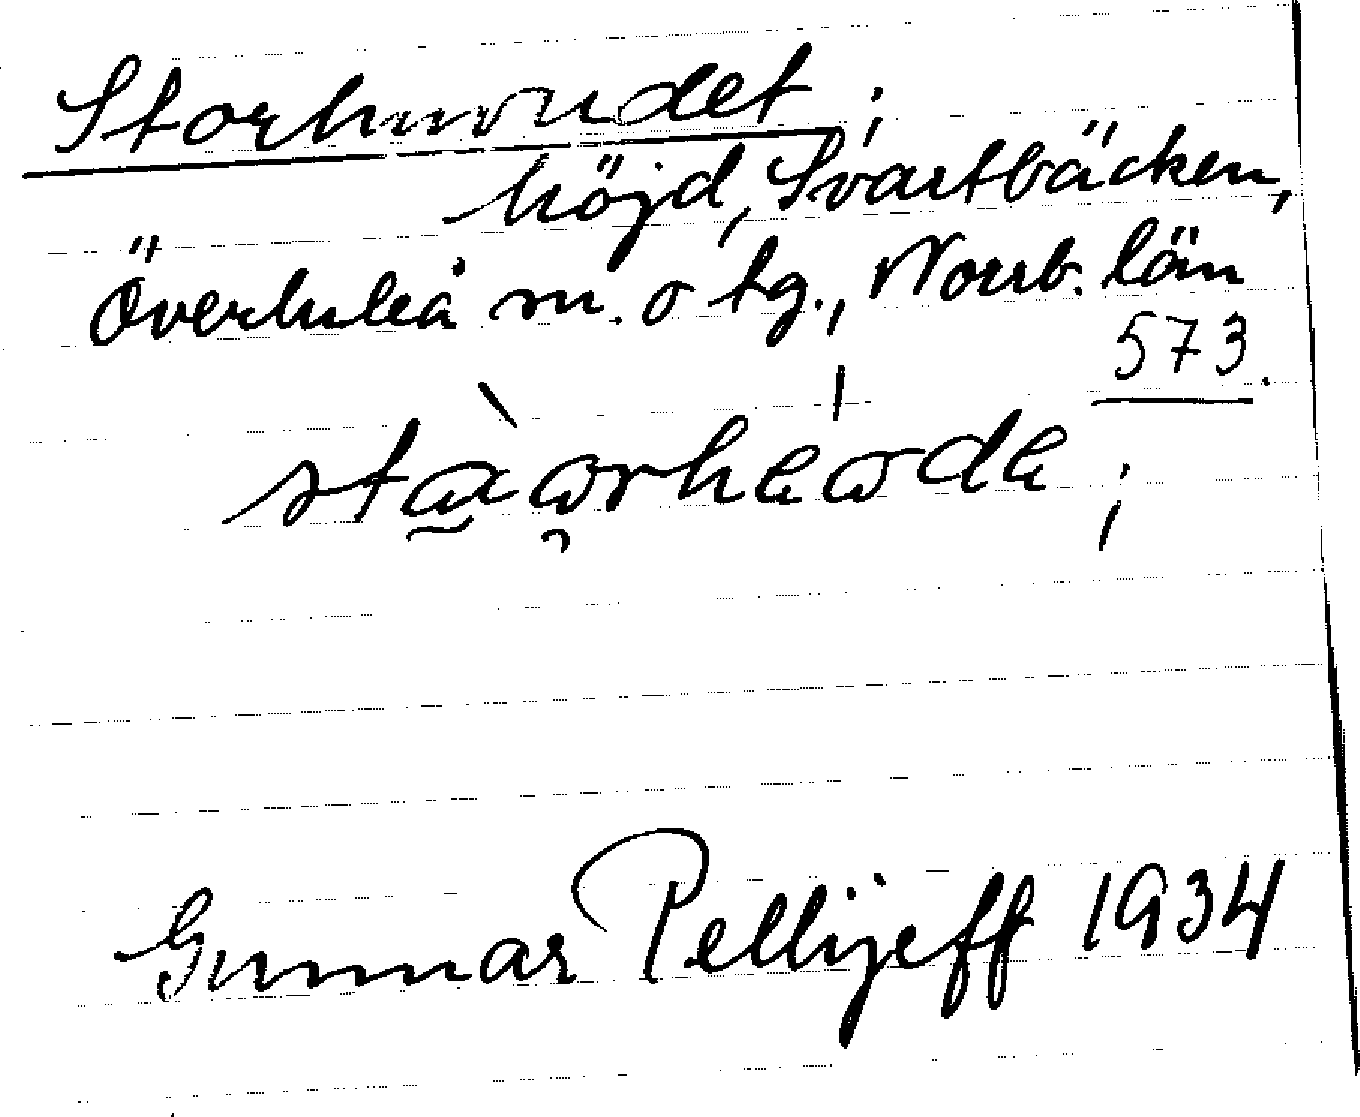 Storhuvudet;
höjd, Svartbäcken,
Överluleå sn. o tg., Norrb. län
573.
Gunnar Pellijeff 1934